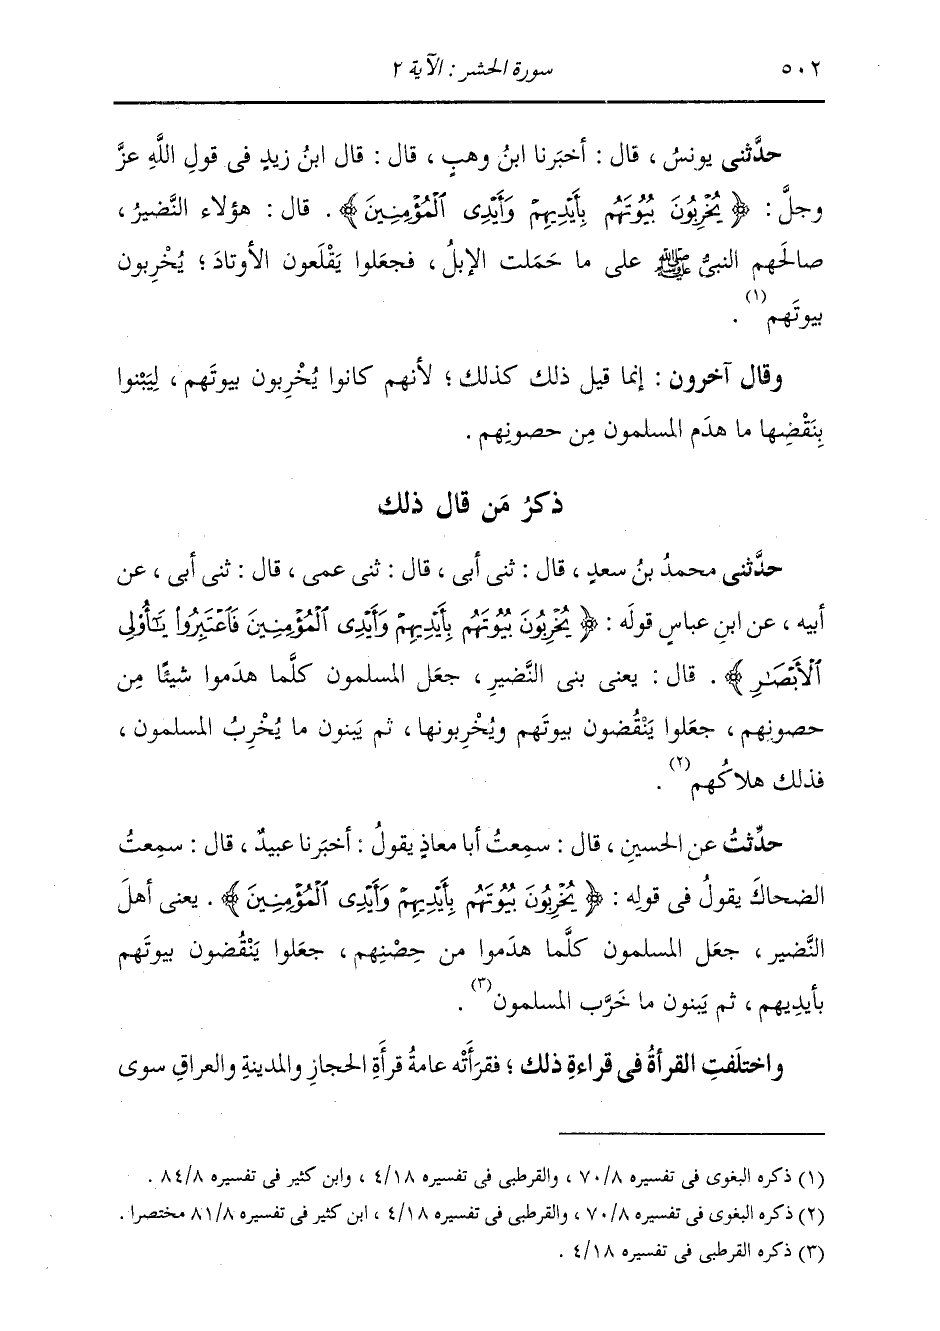 ٥٠٢ سورة الحشر : الآية ٢
حدَّثنى يونسُ ، قال : أخبَرنا ابنُ وهبٍ ، قال : قال ابنُ زيدٍ فى قولِ اللَّهِ عزَّ
وجلَّ : ﴿ يُخْرِبُونَ بُيُوتَهُم بِأَيْدِيهِمْ وَأَيْدِى ٱلْمُؤْمِنِينَ ﴾ . قال : هؤلاء النَّضيرُ ،
صالَحهم النبىُّ ﷺ على ما حَمَلت الإبلُ ، فجعَلوا يَقْلَعون الأوتادَ ؛ يُخْرِبون
بيوتَهم(١) .
وقال آخرون : إنما قيل ذلك كذلك ؛ لأنهم كانوا يُخْرِبون بيوتَهم ، لِيَبْنوا
بِنَقْضِها ما هدَم المسلمون مِن حصونِهم .
ذكرُ مَن قال ذلك
حدَّثنى محمدُ بنُ سعدٍ ، قال : ثنى أبى ، قال : ثنى عمى ، قال : ثنى أبى ، عن
أبيه ، عن ابنِ عباسٍ قولَه : ﴿ يُخْرِبُونَ بُيُوتَهُم بِأَيْدِيهِمْ وَأَيْدِى ٱلْمُؤْمِنِينَ فَٱعْتَبِرُوا۟ يَـٰٓأُو۟لِى
ٱلْأَبْصَـٰرِ ﴾ . قال : يعنى بنى النَّضيرِ ، جعَل المسلمون كلَّما هدَموا شيئًا مِن
حصونِهم ، جعَلوا يَنْقُضون بيوتَهم ويُخْرِبونها ، ثم يَبنون ما يُخْرِبُ المسلمون ،
فذلك هلاكُهم(٢) .
حدِّثتُ عن الحسينِ ، قال : سمِعتُ أبا معاذٍ يقولُ : أخبَرنا عبيدٌ ، قال : سمِعتُ
الضحاكَ يقولُ فى قولِه : ﴿ يُخْرِبُونَ بُيُوتَهُم بِأَيْدِيهِمْ وَأَيْدِى ٱلْمُؤْمِنِينَ ﴾ . يعنى أهلَ
النَّضيرِ ، جعَل المسلمون كلَّما هدَموا من حِصْنِهم ، جعَلوا يَنْقُضون بيوتَهم
بأيدِيهم ، ثم يَبنون ما خَرَّب المسلمون(٣) .
واختلَفتِ القرأةُ فى قراءةِ ذلك ؛ فقرَأَتْه عامةُ قرأَةِ الحجازِ والمدينةِ والعراقِ سوى
(١) ذكره البغوى فى تفسيره ٧٠/٨ ، والقرطبى فى تفسيره ٤/١٨ ، وابن كثير فى تفسيره ٨٤/٨ .
(٢) ذكره البغوى فى تفسيره ٧٠/٨ ، والقرطبى فى تفسيره ٤/١٨ ، ابن كثير فى تفسيره ٨١/٨ مختصرا .
(٣) ذكره القرطبى فى تفسيره ٤/١٨ .